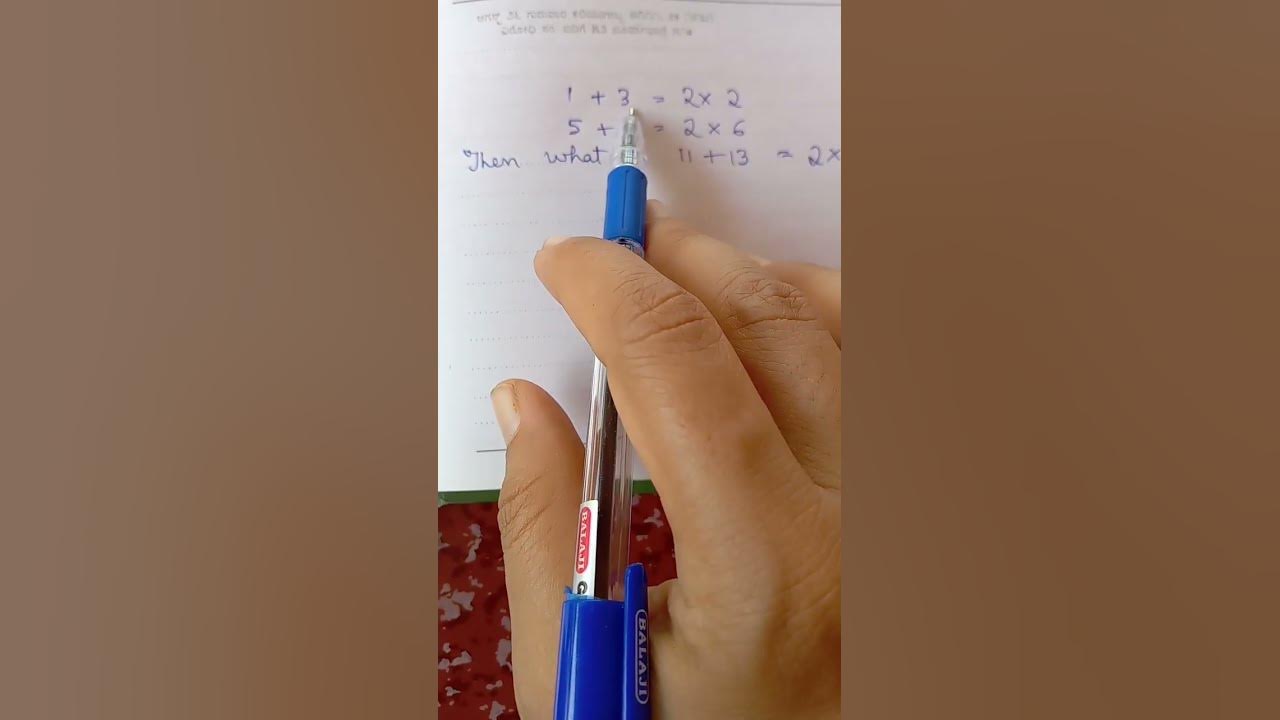 1 + 3 = 2 × 2
5 + = 2 × 6
Then what 11 + 13 = 2 ×
BALAJI
G
BALAJI